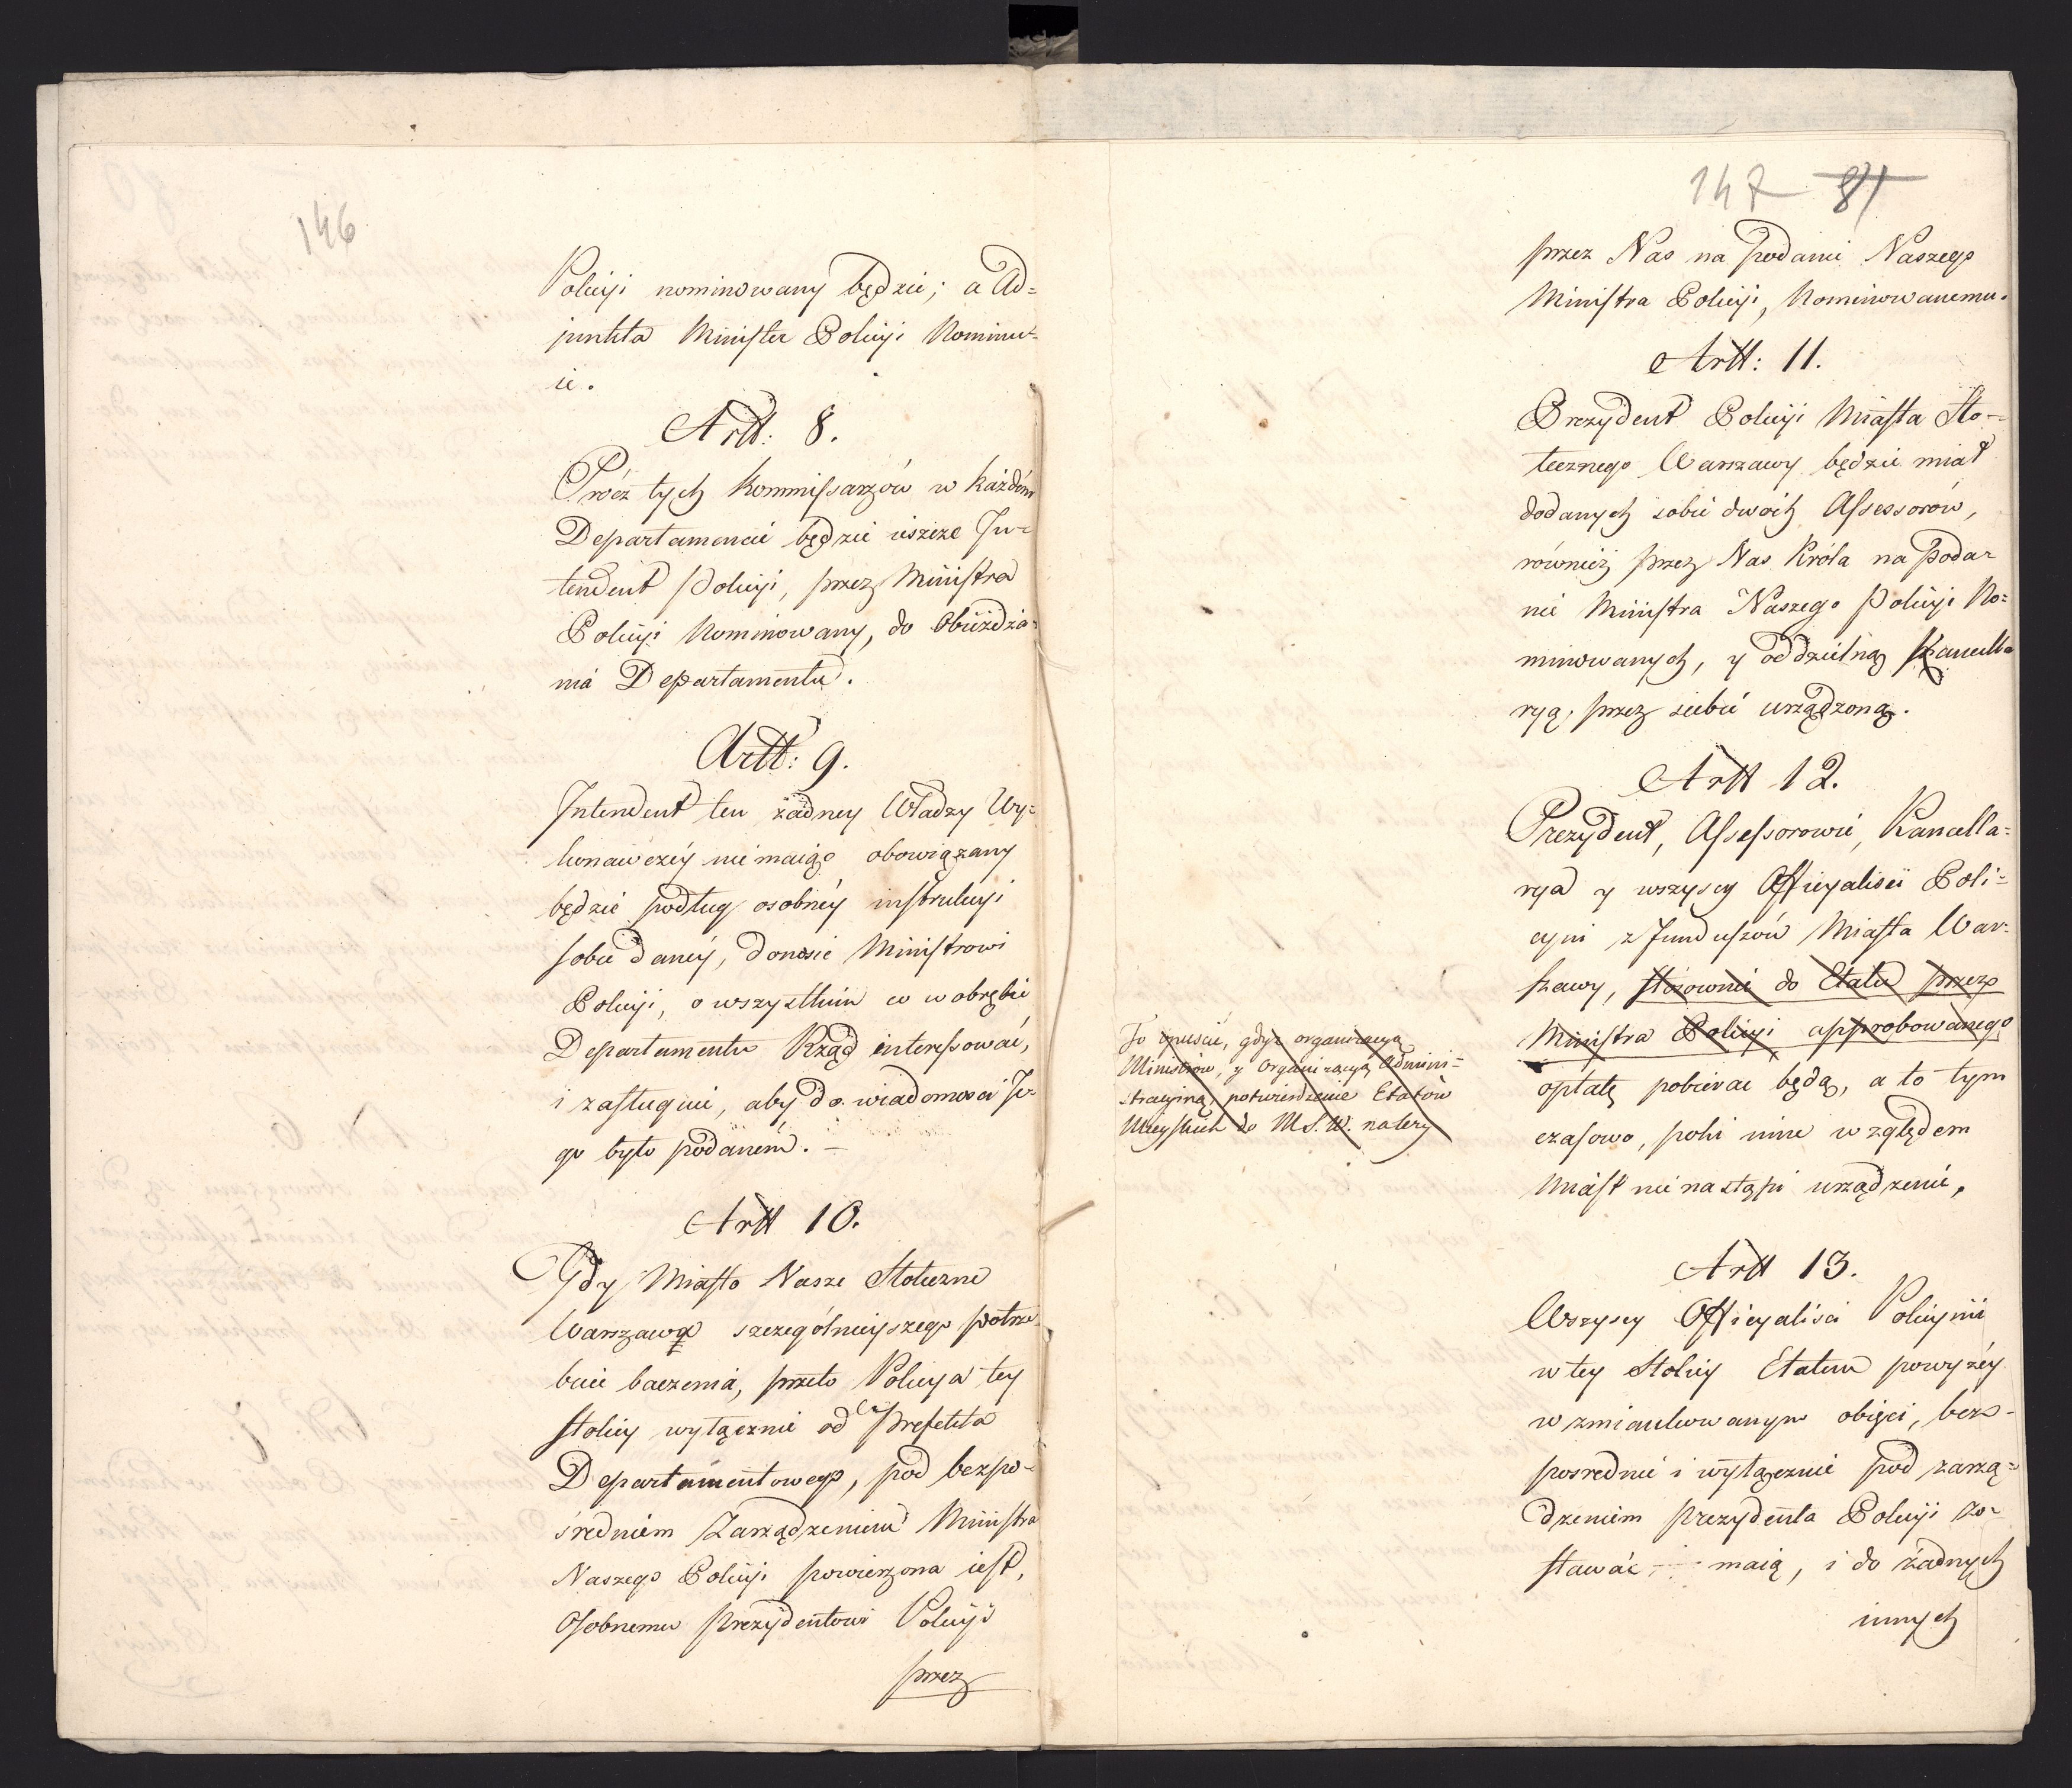 146
Policyi nominowany będzie; a Ad=
junkta Minister Policyi Nominu=
ie.
Artt: 8.
Prócz tych Kommissarzów w każdém
Departamencie będzie ieszcze In=
tendent Policyi, przez Ministra
Policyi Nominowany, do Obieżdża=
nia Departamentu.
Artt: 9.
Intendent ten żadney Władzy Wy=
konawczéy nie maiąc obowiązany
będzie podług osobnéy instrukcyi
sobie danéy, donosić Ministrowi
Policyi, o wszystkim co w obrębie
Departamentu Rząd interessować,
i zasługuie, aby do wiadomości Je=
go było podaném. –
Artt 10.
Gdy Miasto Nasze Stołeczne
Warszawa szczególnieyszego potrze=
buie baczenia, przeto Policya tey
stolicy wyłącznie od Prefekta
Departamentowego, pod bezpo=
średniem Zarządzeniem Ministra
Naszego Policyi powierzona iest,
Osobnemu Prezydentowi Policyi
przez
147 81
przez Nas na podanie Naszego
Ministra Policyi, Nominowanemu.
Artt: 11.
Prezydent Policyi Miasta Sto=
łecznego Warszawy będzie miał
dodanych sobie dwóch Assessorów,
również przez Nas Króla na Poda=
nie Ministra Naszego Policyi No=
minowanych, y oddzielną Kancella
ryą, przez siebie urządzoną.
Artt 12.
Prezydent, Assessorowie, Kancella=
rya y wszyscy Officyaliści Poli=
cyni z funduszów Miasta War=
szawy, stosownie do Etatu przez
Ministra Policyi approbowanego
opłatę pobierać będą, a to tym
czasowo, poki inne względem
Miast nie nastąpi urządzenie,
To opuścić, gdyż organizacya
Ministrów, y Organizacya Admini=
stracyiną, potwierdzenie Etatów
Mieyskich do M. S. W. należy
Artt 13.
Wszyscy Officyaliści Policyini
w tey Stolicy Etatem powyżéy
wzmiankowanym obięci, bez=
pośrednie i wyłącznie pod zarzą=
dzeniem Prezydenta Policyi zo=
stawać maią, i do żadnych
innych